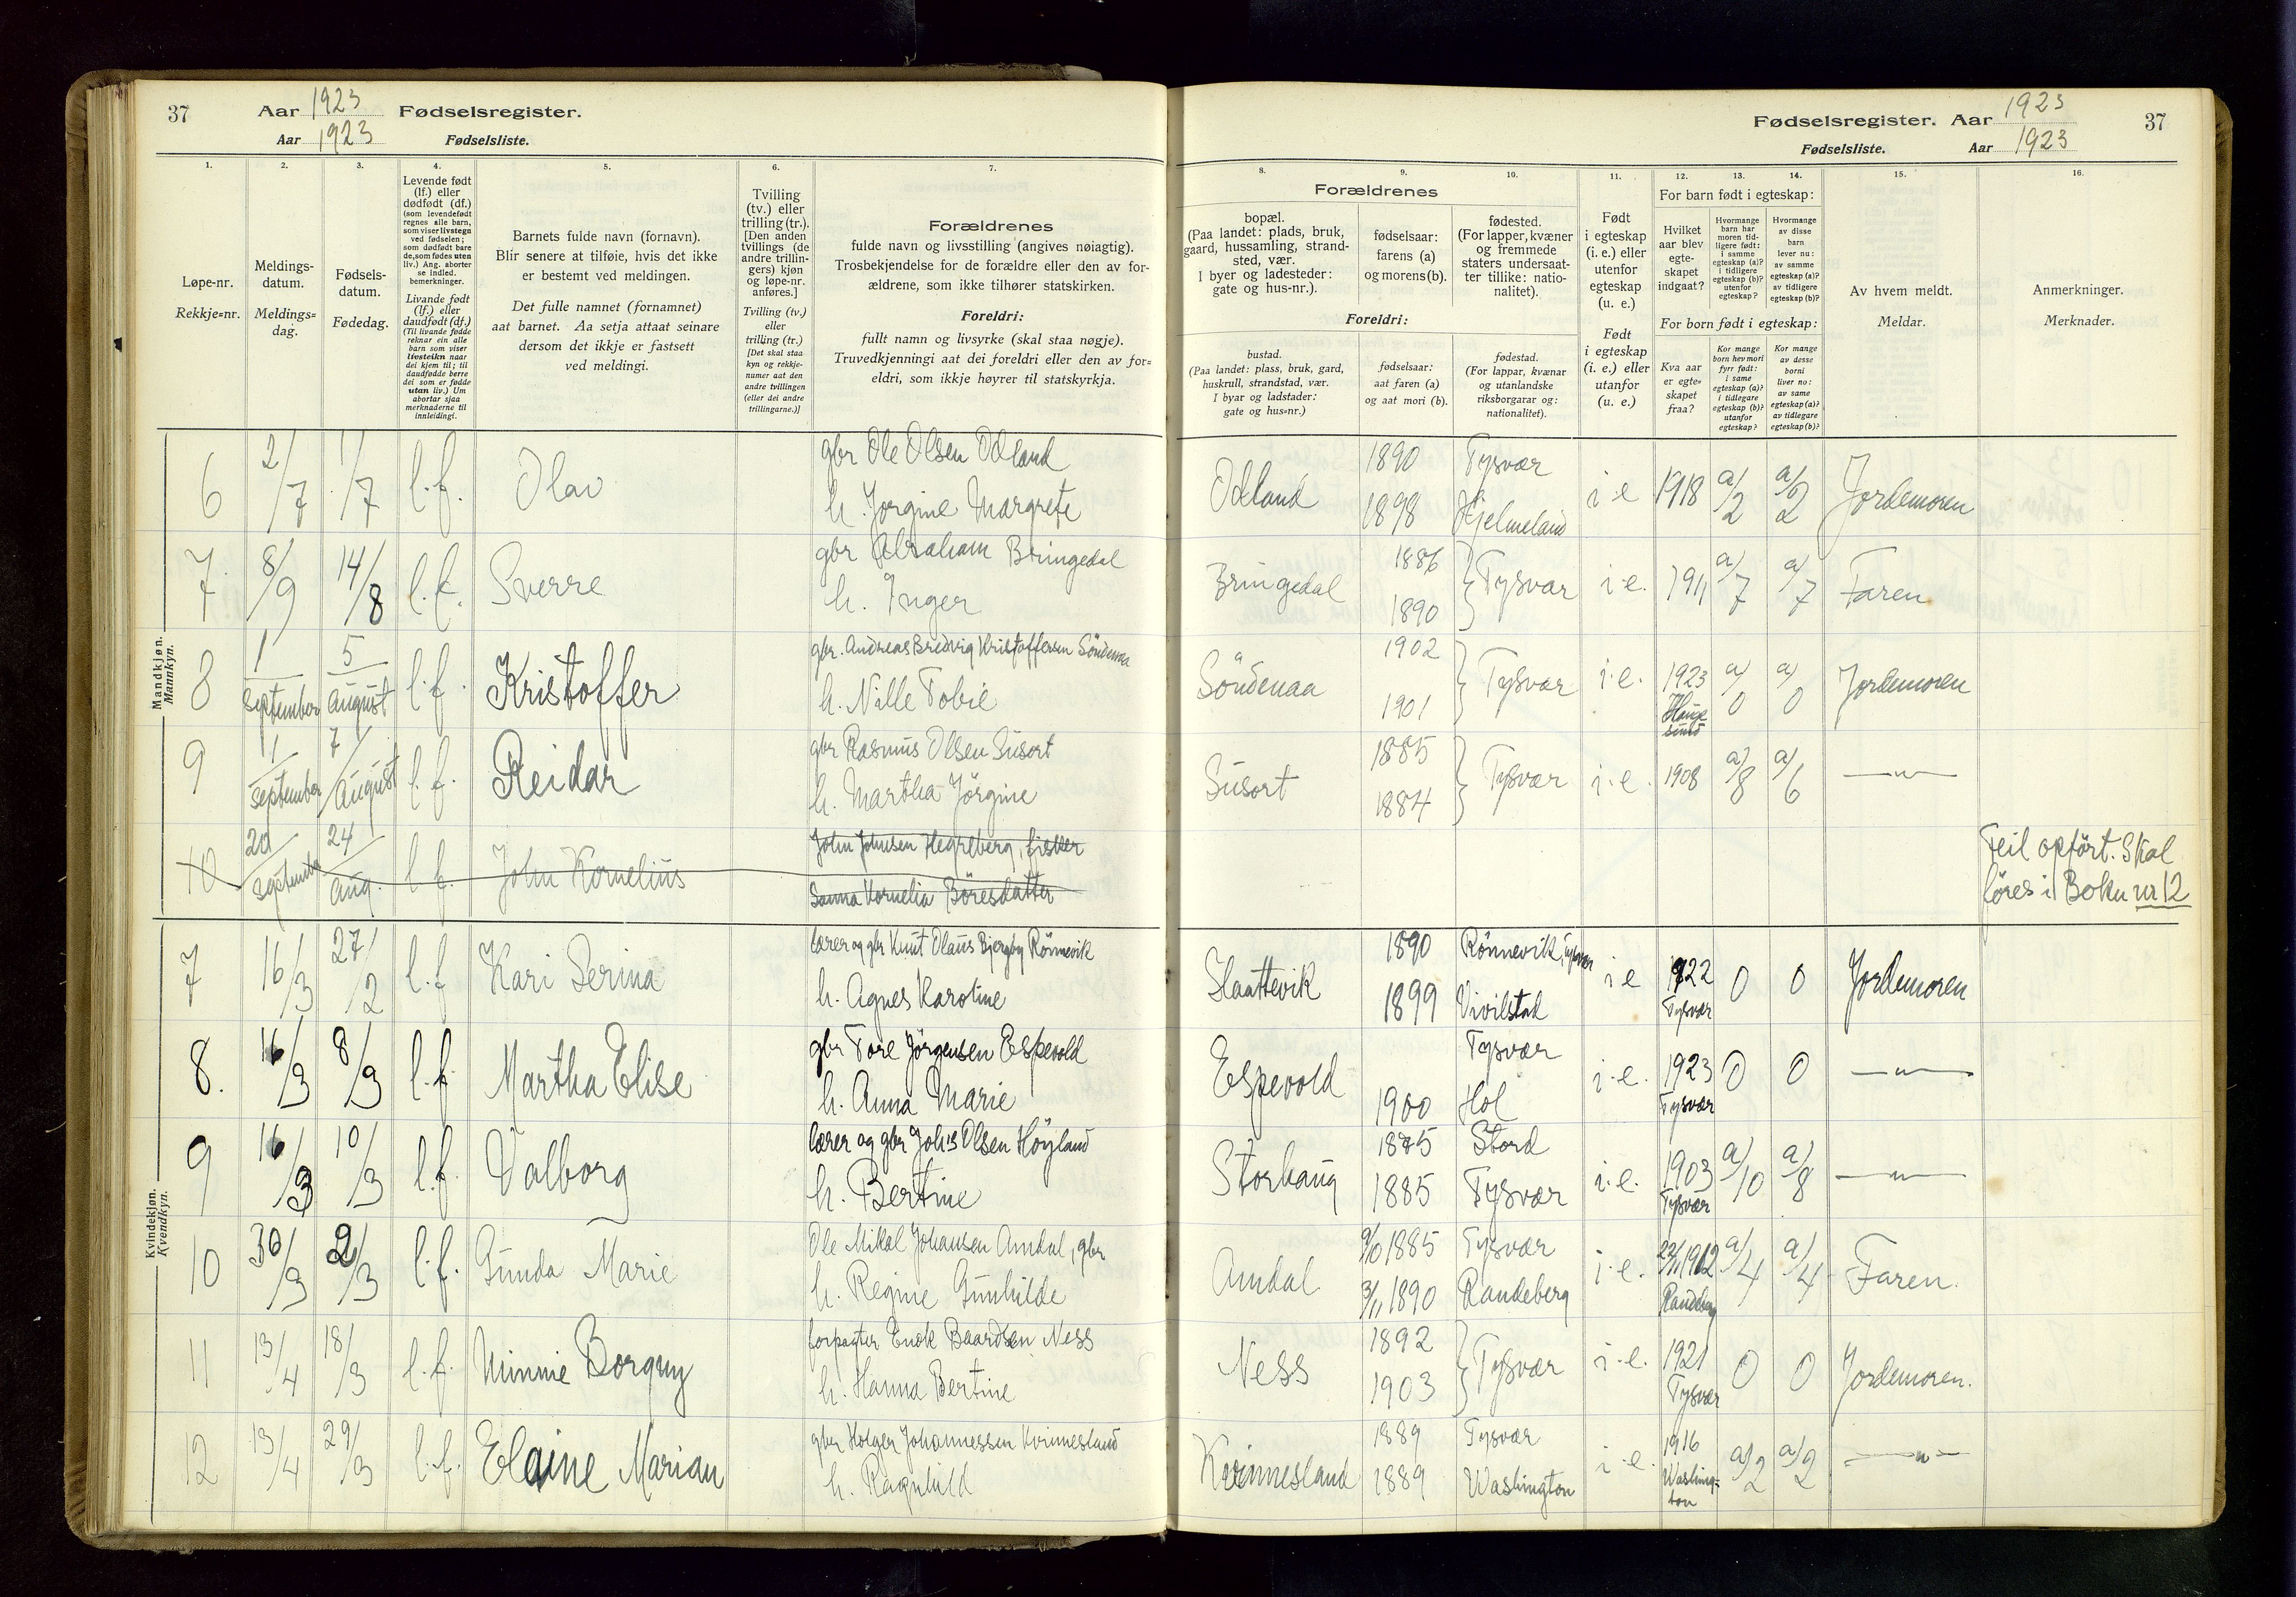 37 Aar 1923 Fødselsregister.
Aar 1923 Fødselsliste.
1. 2. 3. 4. 5. 6. 7.
Løpe-nr.
Rekkje=nr.
Meldings-
datum.
Meldings=
dag.
Fødsels-
datum.
Fødedag.
Levende født
(lf.) eller
dødfødt (df.)
(som levendefødt
regnes alle barn,
som viser livstegn
ved fødselen;
som dødfødt bare
de, som fødes uten
liv.) Ang. aborter
se indled.
bemerkninger.
Livande født
(lf.) eller
daudfødt (df.)
(Til livande fødde
reknar ein alle
barn som viser
livsteikn naar
dei kjem til; til
daudfødde berre
dei som er fødde
utan liv.) Um
abortar sjaa
merknaderne til
innleidingi.
Barnets fulde navn (fornavn).
Blir senere at tilføie, hvis det ikke
er bestemt ved meldingen.
Det fulle namnet (fornamnet)
aat barnet. Aa setja attaat seinare
dersom det ikkje er fastsett
ved meldingi.
Tvilling
(tv.) eller
trilling (tr.).
[Den anden
tvillings (de
andre trillin-
gers) kjøn
og løpe-nr.
anføres.]
Tvilling (tv.)
eller
trilling (tr.)
[Det skal staa
kyn og rekkje-
numer aat den
andre tvillingen
(eller dei andre
trillingarne.)]
Forældrenes
fulde navn og livsstilling (angives nøiagtig).
Trosbekjendelse for de forældre eller den av for-
ældrene, som ikke tilhører statskirken.
Foreldri:
fullt namn og livsyrke (skal staa nøgje).
Truvedkjenningi aat dei foreldri eller den av for=
eldri, som ikkje høyrer til statskyrkja.
Mandkjøn.
Mannkyn.
6 2/7 1/7 l.f. Olav gbr Ole Olsen Odland
h. Jorgine Margrete
7. 8/9 14/8 l.f. Sverre gbr Abraham Bringedal
h. Inger
8 1 september 5 august l.f. Kristoffer gbr. Andreas Bredvig Kristoffersen Söndenaa
h. Nille Tobie
9 1/september 7/August l.f. Reidar gbr Rasmus Olsen Susort
h. Martha Jörgine
10 20 september 24 aug. l.f. John Kornelius John Johnsen Hegreberg, fisker
Sanna Kornelia Böresdatter
Kvindekjøn.
Kvendkyn.
7 16/3 27/2 l.f Kari Serina lærer og gbr Knut Olaus Bjergby Rönnevik
h. Agnes Karoline
8. 16/3 8/3 l.f. Martha Elise gbr Tore Jörgensen Espevold
h. Anna Marie
9 16/3 10/3 l.f. Valborg lærer og gbr Johs Olsen Höyland
h. Bertine
10 30/3 2/3 l.f. Gunda Marie Ole Mikal Johansen Amdal, gbr
h. Regine Gunhilde
11 13/4 18/3 l.f. Minnie Borgny forpagter Enok Baardsen Ness
h. Hanna Bertine
12 13/4 29/3 l.f. Elaine Marian gbr Holger Johannessen Kvinnesland
h. Ragnhild
Fødselsregister. Aar 1923 37
Fødselsliste. Aar 1923
8. 9. 10. 11. 12. 13. 14. 15. 16.
Forældrenes
bopæl.
(Paa landet: plads, bruk,
gaard, hussamling, strand-
sted, vær.
I byer og ladesteder:
gate og hus-nr.).
fødselsaar:
farens (a)
og morens (b).
fødested.
(For lapper, kvæner
og fremmede
staters undersaat-
ter tillike: natio-
nalitet).
Foreldri:
bustad.
(Paa landet: plass, bruk, gard,
huskrull, strandstad, vær.
I byar og ladstader:
gate og hus=nr.)
fødselsaar:
aat faren (a)
og aat mori (b).
fødestad.
(For lappar, kvænar
og utanlandske
riksborgarar og:
nationalitet).
Født
i egteskap
(i. e.) eller
utenfor
egteskap
(u. e.)
Født
i egteskap
(i. e.) eller
utanfor
(u. e.)
For barn født i egteskap:
Hvilket
aar blev
egte-
skapet
indgaat?
Hvormange
barn har
moren tid-
ligere født:
i samme
egteskap (a)?
i tidligere
egteskap (b)?
utenfor
egteskap?
Hvormange
av disse
barn
lever nu:
av samme
egteskap (a)?
av tidligere
egteskap (b)?
For born født i egteskap:
Kva aar
er egte=
skapet
fraa?
Kor mange
born hev mori
fyrr født:
i same
egteskap (a)?
i tidlegare
egteskap (b)?
utanfor
egteskap?
Kor mange
av desse
borni
liver no:
av same
egteskap (a)?
av tidlegare
egteskap (b)?
Av hvem meldt.
Meldar.
Anmerkninger.
Merknader.
Odland 1890 Tysvær i.e 1918 a/2 a/2 Jordemoren
1898 Hjelmeland
Bringedal 1886 1890 Tysvær i.e. 1911 a/7 a/7 Faren
Söndenaa 1902 1901 Tysvær i.e. 1923 Haugesund a/0 a/0 Jordemoren
Susort 1885 1884 Tysvær i.e. 1908 a/8 a/6 —"—
Feil opfört. Skal
föres i Boku nr 12
Slaattevik 1890 Rönnevik, Tysvær i e 1922 Tysvær 0 0 Jordemoren
1899 Vivilstad
Espevold Tysvær i.e. 1923 Tysvær 0 0 —"—
1900 Hol
Storhaug 1875 Stord i.e. 1903 Tysvær a/10 a/8 —"—
1885 Tysvær
Amdal 9/10 1885 Tysvær i.e. 22/11 1912 Randeberg a/4 a/4 Faren.
3/11 1890 Randeberg
Ness 1892 1903 Tysvær i.e. 1921 Tysvær 0 0 Jordemoren.
Kvinnesland 1889 Tysvær i e. 1916 Washing-
ton a/2 a/2 —"—
1889 Washington